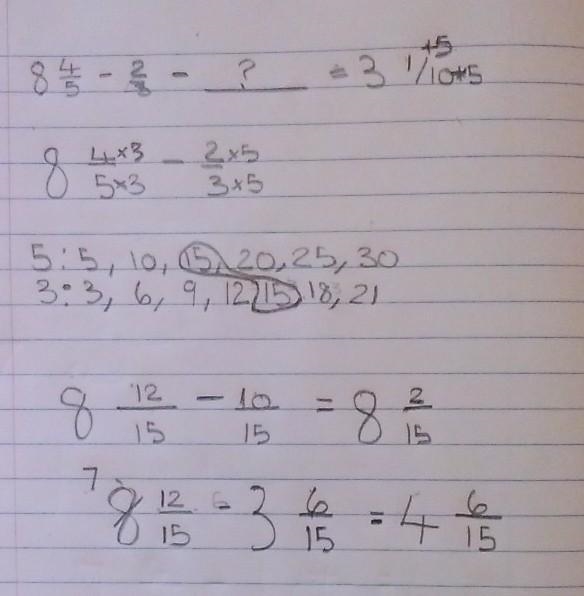 8 4/5 - 2/3 - ? = 3 1/10 +5 *5
8 4×3/5×3 - 2×5/3×5
5: 5, 10, 15, 20, 25, 30
3: 3, 6, 9, 12, 15, 18, 21
8 12/15 - 10/15 = 8 2/15
7 8 12/15 - 3 6/15 = 4 6/15